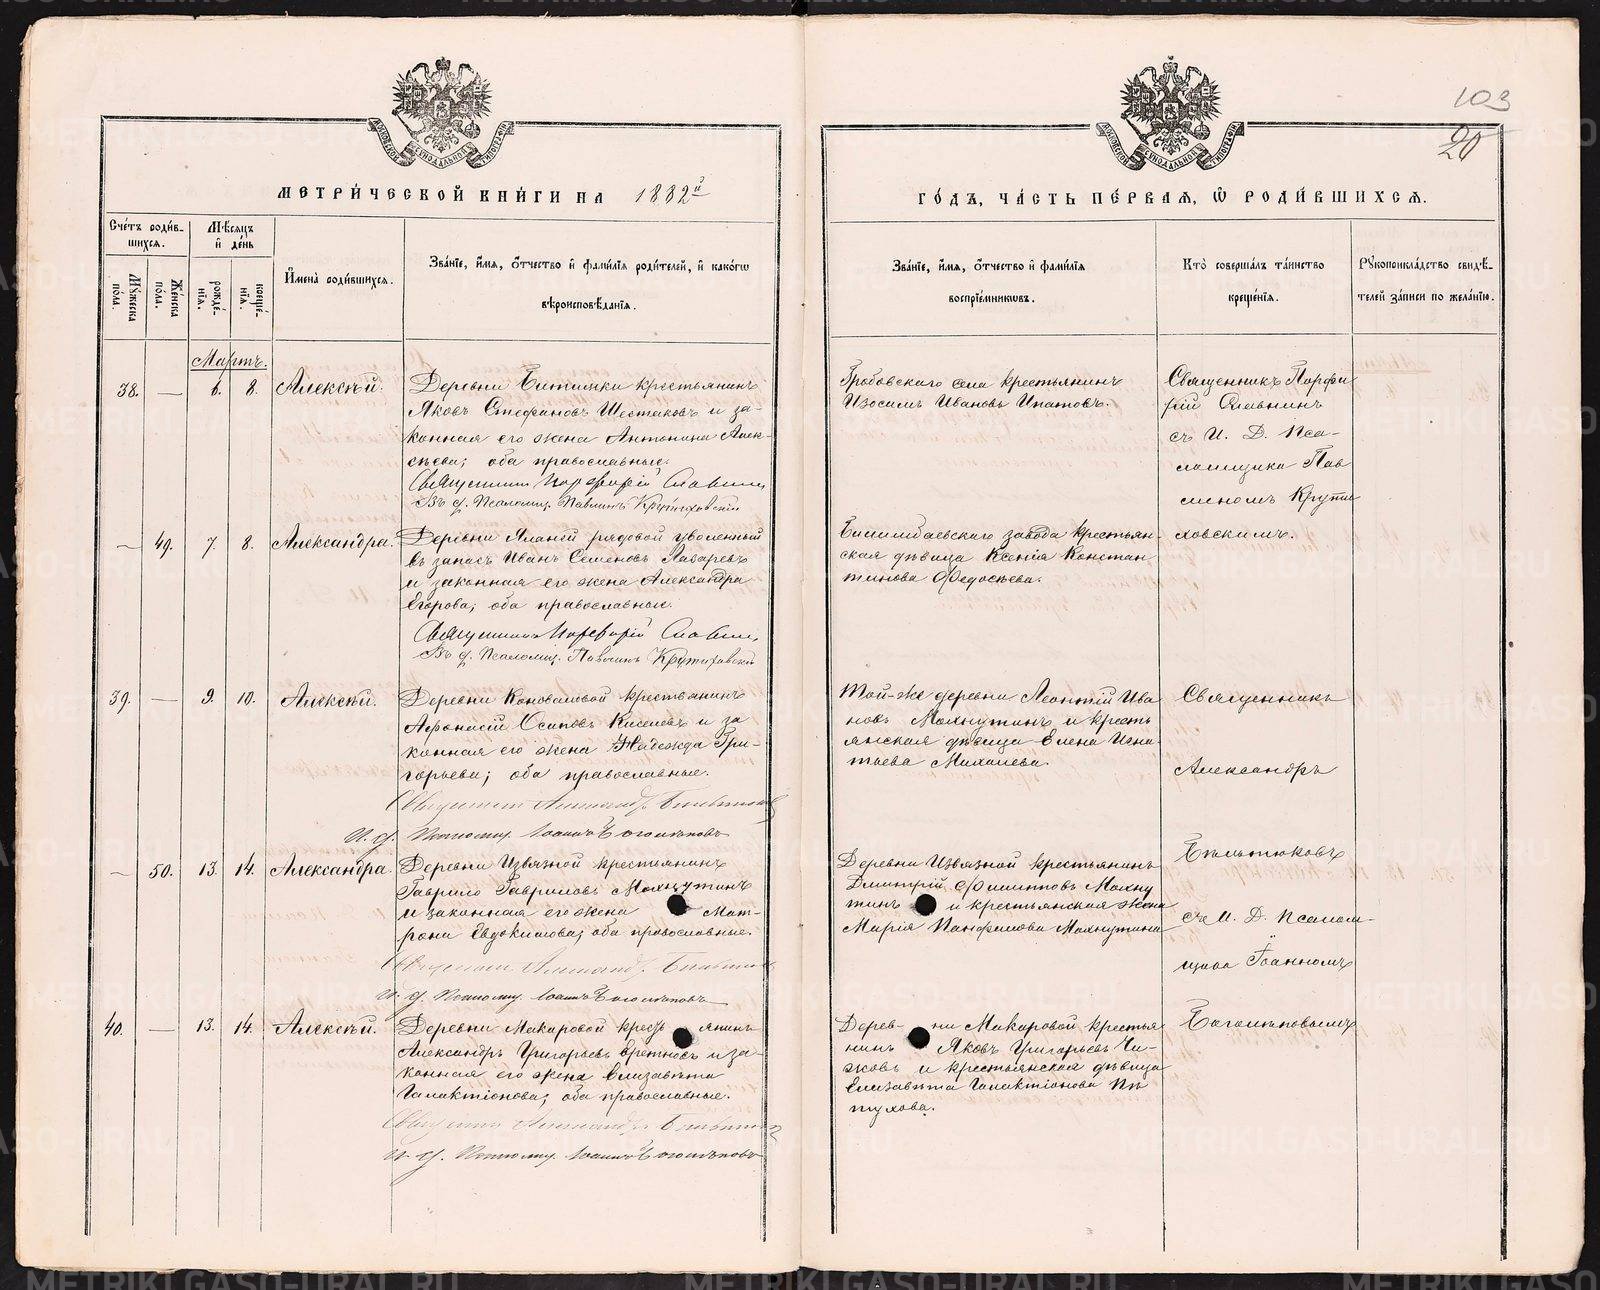 103
20
МЕТРИЧЕСКОЙ КНИГИ НА 1882й
ГОДЪ, ЧАСТЬ ПЕРВАЯ, Ѡ РОДИВШИХСЯ.
Счетъ родив-
шихся.
Мужеска пола.
Женска пола.
Мѣсяцъ и день
рожде-
нія.
креще-
нія.
Имена родившихся.
Званіе, имя, отчество и фамилія родителей, и какогѡ
вѣроисповѣданія.
Званіе, имя, отчество и фамилія
воспріемникѡвъ.
Кто совершалъ таинство
крещенія.
Рукоприкладство свидѣ-
телей записи по желанію.
Мартъ.
38. — 6. 8. Алексѣй.
Деревни Битимки крестьянинъ
Яковъ Стефановъ Шестаковъ и за-
конная его жена Антонина Алек-
сѣева; оба православные.
Священникъ Порфирій Славнинъ
Въ д. Псаломщ. Павлинъ Крутиховскій
Гробовскаго села крестьянинъ
Изосимъ Ивановъ Ипатовъ.
Священникъ Порфи
рій Славнинъ
съ И. Д. Пса-
ломщика Пав
линомъ Крути
ховскимъ.
— 49. 7. 8. Александра.
Деревни рядовой уволенный
въ запасъ Иванъ Семеновъ Лазаревъ
и законная его жена Александра
Егорова; оба православные.
Священникъ Порфирій Славнинъ
Въ д. Псаломщ. Павлинъ Крутиховскій
Билимбаевскаго завода крестьян-
ская дѣвица Ксенія Констан
тинова Федосѣева.
39. — 9. 10. Алексѣй.
Деревни Коноваловой крестьянинъ
Афонасій Осиповъ Киселевъ и за
конная его жена Надежда Гри-
горьева; оба православные.
Священникъ Александръ Бѣльтюковъ
И. д. Псаломщ. Іоаннъ Боголѣповъ
Той-же деревни Леонтій Ива
новъ Махнутинъ и кресть
янская дѣвица Елена Игна
тьева Михалева.
Священникъ
Александръ
Бѣльтюковъ
съ И. Д. Псалом-
щика Іоанномъ
Боголѣповымъ
— 50. 13. 14. Александра.
Деревни Извязной крестьянинъ
Гаврило Гавриловъ Махнутинъ
и законная его жена Мат-
рона Евдокимова; оба православные.
Священникъ Александръ Бѣльтюковъ
И. д. Псаломщ. Іоаннъ Боголѣповъ
Деревни Извязной крестьянинъ
Дмитрій Филиповъ Махну
тинъ и крестьянская жена
Марія Панфилова Махнутина
40. — 13. 14. Алексѣй.
Деревни Макаровой крестьянинъ
Александръ Григорьевъ и за-
конная его жена Елизавета
Галактіонова; оба православные.
Священникъ Александръ Бѣльтюковъ
И. д. Псаломщ. Іоаннъ Боголѣповъ
Дерев- ни Макаровой крестья
нинъ Яковъ Григорьевъ Чи-
жовъ и крестьянская дѣвица
Елизавета Галактіонова Пѣ
тухова.
METRIKI.GASO-URAL.RU